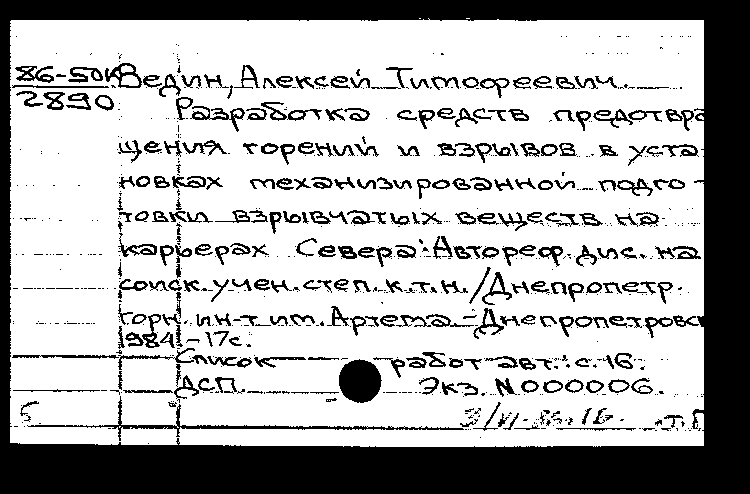 86-50к Ведин, Алексей Тимофеевич.
2890 Разработка средств предотвра
щения горений и взрывов в уста-
новках механизированной подго-
товки взрывчатых веществ на
карьерах Севера: Автореф. дис. на
соиск. учен. степ. к.т.н. / Днепропетр.
горн. ин-т им. Артема. - Днепропетровск
1984. - 17с.
Список работ авт.: с. 16.
ДСП. Экз. N000006.
Б